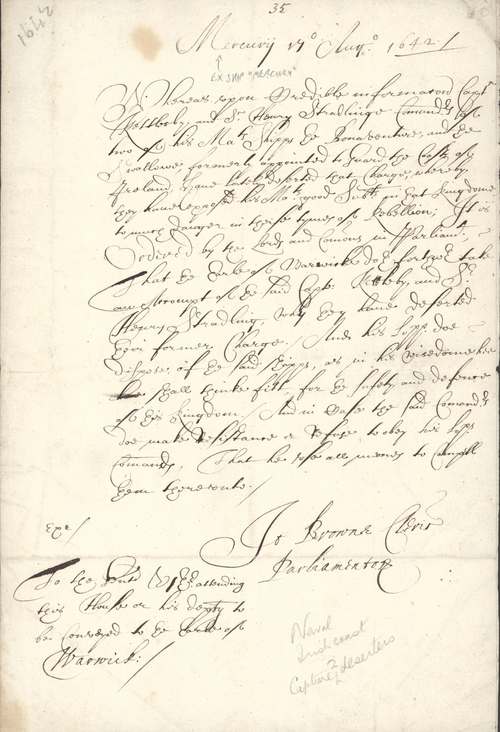 35
1642
Mercurij 17º Augº. 1642./
EX SHIP "MERCURY"
Whereas upon Credible informacon Capt
Kettleby, and Sr. Henry Stradlinge Comandrs of
two of his Mats Shipps the Bonaventure, and the
Swallowe, formerly appointed to guard the Coasts of
Ireland, have lately deserted that Charge, whereby
they have exposed his Mats good Subts in that kingdome
to much danger in theise tymes of Rebellion; It is
Ordered by the Lords and Comons in Parliamt,
That the Earle of Warwicke doe forthwth take
an Accompt of the said Capt: Kettleby, and Sr.
Henry Stradling, why they have deserted
their former Charge. And his Lopp doe
dispose of the said Shipps, as in his wisedome hee
shall thinke fitt, for the safety and defence
of this kingdom. And in Case the said Comandrs
doe make resistance or refuse to obey his Lopps
Comands, That he use all meanes to Compell
them thereunto./
Exr/
Jo Browne Cleric
Parliamentor
To the Gent attending
this House or his deputy to
be Conveyed to the Earle of
Warwick:/
Naval
Irish coast
Capture of deserters